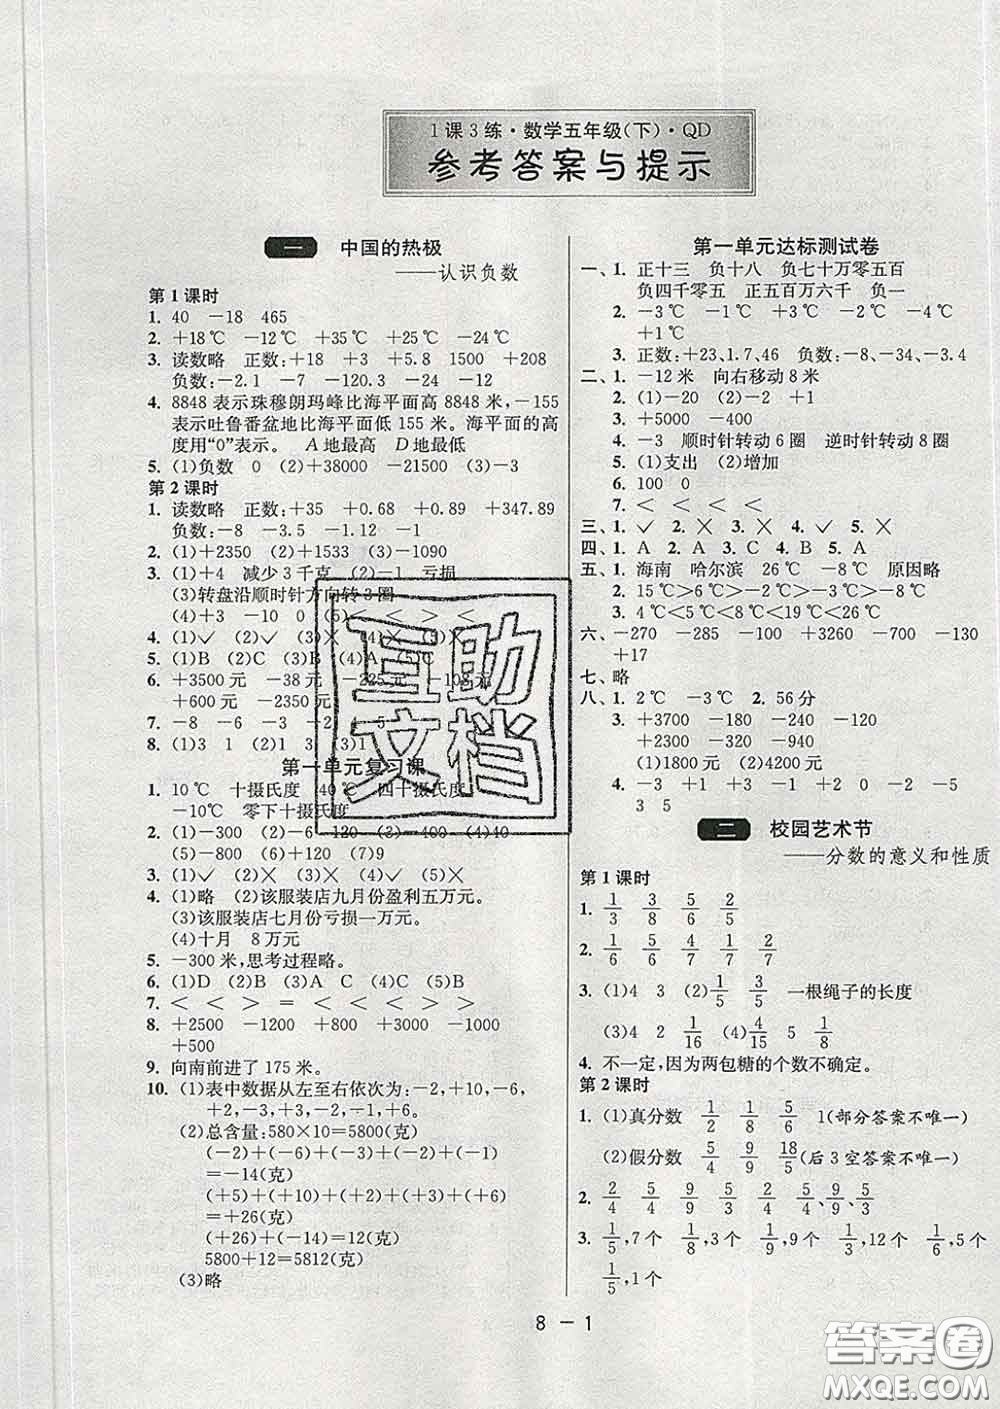 1课3练·数学五年级(下)·QD
参考答案与提示
一 中国的热极
——认识负数
第1课时
1. 40 -18 465
2. +18℃ -12℃ +35℃ +25℃ -24℃
3. 读数略 正数:+18 +3 +5.8 1500 +208
负数:-2.1 -7 -120.3 -24 -12
4. 8848表示珠穆朗玛峰比海平面高8848米,-155
表示吐鲁番盆地比海平面低155米。海平面的高
度用“0”表示。 A地最高 D地最低
5. (1)负数 0 (2)+38000 -21500 (3)-3
第2课时
1. 读数略 正数:+35 +0.68 +0.89 +347.89
负数:-8 -3.5 -1.12 -1
2. (1)+2350 (2)+1533 (3)-1090
3. (1)+4 减少3千克 (2)-1 亏损
(3)转盘沿顺时针方向转3圈
(4)+3 -10 0 (5)< < > <
4. (1)✓ (2)✓ (3)× (4)× (5)×
5. (1)B (2)C (3)B (4)A (5)C
6. +3500元 -38元 -225元 -108元
+600元 -2350元
7. -8 -6 -3 -2 5
8. (1)3 1 (2)1 3 (3)1
第一单元复习课
1. 10℃ 十摄氏度 40℃ 四十摄氏度
-10℃ 零下十摄氏度
2. (1)-300 (2)-6 120 (3)-400 (4)40
(5)-800 (6)+120 (7)9
3. (1)✓ (2)× (3)✓ (4)✓ (5)×
4. (1)略 (2)该服装店九月份盈利五万元。
(3)该服装店七月份亏损一万元。
(4)十月 8万元
5. -300米,思考过程略。
6. (1)D (2)B (3)A C (4)C (5)B
7. < < > = < < < > >
8. +2500 -1200 +800 +3000 -1000
+500
9. 向南前进了175米。
10. (1)表中数据从左至右依次为:-2,+10,-6,
+2,-3,+3,-2,-1,+6。
(2)总含量:580×10=5800(克)
(-2)+(-6)+(-3)+(-2)+(-1)
=-14(克)
(+5)+(+10)+(+2)+(+3)+(+6)
=+26(克)
(+26)+(-14)=12(克)
5800+12=5812(克)
(3)略
第一单元达标测试卷
一、1. 正十三 负十八 负七十万零五百
负四千零五 正五百万六千 负一
2. -3℃ -1℃ +3℃ -2℃ -4℃
+1℃
3. 正数:+23、1.7、46 负数:-8、-34、-3.4
二、1. -12米 向右移动8米
2. (1)-20 (2)-2 +1
3. +5000 -400
4. -3 顺时针转动6圈 逆时针转动8圈
5. (1)支出 (2)增加
6. 100 0
7. < < < <
三、1. ✓ 2. × 3. × 4. ✓ 5. ×
四、1. A 2. A 3. C 4. B 5. A
五、1. 海南 哈尔滨 26℃ -8℃ 原因略
2. 15℃>6℃>-2℃>-3℃>-8℃
3. 4℃<5℃<8℃<19℃<26℃
六、-270 -285 -100 +3260 -700 -130
+17
七、略
八、1. 2℃ -3℃ 2. 56分
3. +3700 -180 -240 -120
+2300 -320 -940
(1)1800元 (2)4200元
4. -3 +1 -4 +2 0 -2 -5
3 5
二 校园艺术节
——分数的意义和性质
第1课时
1. 1/3 3/8 5/6 2/5
2. 1/6 5/6 4/7 1/7 2/7
3. (1)4 3 (2)1/5 3/5 一根绳子的长度
(3)4 2 1/16 (4)4/15 5 1/8
4. 不一定,因为两包糖的个数不确定。
第2课时
1. (1)真分数 1/2 1/8 5/6 1(部分答案不唯一)
(2)假分数 5/4 9/9 18/5(后3空答案不唯一)
2. 2/4 5/4 9/9 5/3 2/4 5/4、9/9、5/3
3. 1/5,7个 1/8,3个 1/9,9个 1/3,12个 1/6,5个
1/5,1个
8－1
互助
文档
答案卷
MXQE.COM